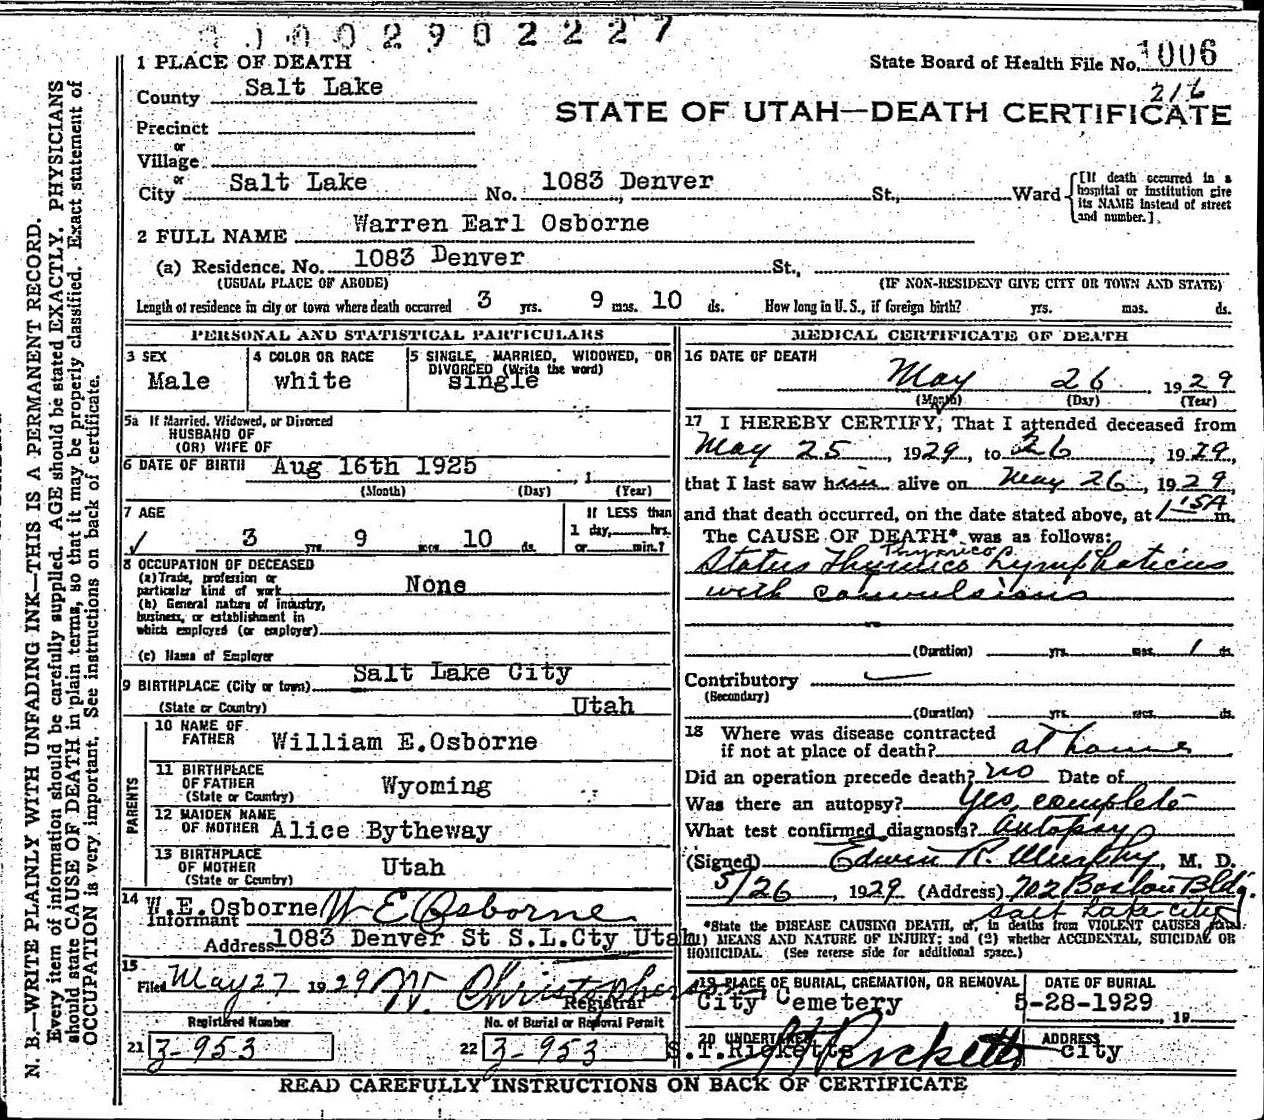 0002902227
1 PLACE OF DEATH
State Board of Health File No. 1006
216
County Salt Lake
STATE OF UTAH—DEATH CERTIFICATE
Precinct
or
Village
or
City Salt Lake No. 1083 Denver St., Ward [If death occurred in a hospital or institution give its NAME instead of street and number.]
2 FULL NAME Warren Earl Osborne
(a) Residence. No. 1083 Denver St.,
(USUAL PLACE OF ABODE) (IF NON-RESIDENT GIVE CITY OR TOWN AND STATE)
Length of residence in city or town where death occurred 3 yrs. 9 mos. 10 ds. How long in U. S., if foreign birth? yrs. mos. ds.
PERSONAL AND STATISTICAL PARTICULARS
3 SEX
Male
4 COLOR OR RACE
white
5 SINGLE, MARRIED, WIDOWED, OR
DIVORCED (Write the word)
single
5a If Married, Widowed, or Divorced
HUSBAND OF
(OR) WIFE OF
6 DATE OF BIRTH Aug 16th 1925 , 1
(Month) (Day) (Year)
7 AGE
3 yrs. 9 mos. 10 ds.
If LESS than
1 day, hrs.
or min.?
8 OCCUPATION OF DECEASED
(a) Trade, profession or
particular kind of work None
(b) General nature of industry,
business, or establishment in
which employed (or employer)
(c) Name of Employer
9 BIRTHPLACE (City or town) Salt Lake City
(State or Country) Utah
PARENTS
10 NAME OF
FATHER William E.Osborne
11 BIRTHPLACE
OF FATHER
(State or Country) Wyoming
12 MAIDEN NAME
OF MOTHER Alice Bytheway
13 BIRTHPLACE
OF MOTHER
(State or Country) Utah
14 W.E.Osborne W E Osborne
Informant
Address 1083 Denver St S.L.Cty Utah
15
Filed May 27 1929 W. Christopherson
Registrar
Registered Number
21 3-953
No. of Burial or Removal Permit
22 3-953
MEDICAL CERTIFICATE OF DEATH
16 DATE OF DEATH
May 26 1929
(Month) (Day) (Year)
17 I HEREBY CERTIFY, That I attended deceased from
May 25, 1929, to 26, 1929,
that I last saw him alive on May 26, 1929,
and that death occurred, on the date stated above, at 1:15A m.
The CAUSE OF DEATH* was as follows:
Thymico
Status Thymico Lymphaticus
with convulsions
(Duration) yrs. mos. 1 ds.
Contributory
(Secondary)
(Duration) yrs. mos. ds.
18 Where was disease contracted
if not at place of death? at home
Did an operation precede death? no Date of
Was there an autopsy? Yes, complete
What test confirmed diagnosis? Autopsy
(Signed) Edwin R. Murphy, M. D.
5/26, 1929 (Address) 702 Boston Bldg.
Salt Lake City
*State the DISEASE CAUSING DEATH, or, in deaths from VIOLENT CAUSES state
(1) MEANS AND NATURE OF INJURY; and (2) whether ACCIDENTAL, SUICIDAL OR
HOMICIDAL. (See reverse side for additional space.)
19 PLACE OF BURIAL, CREMATION, OR REMOVAL
City Cemetery
DATE OF BURIAL
5-28-1929 , 19
20 UNDERTAKER
S.T.Ricketts
ADDRESS
city
READ CAREFULLY INSTRUCTIONS ON BACK OF CERTIFICATE
N. B.—WRITE PLAINLY WITH UNFADING INK—THIS IS A PERMANENT RECORD.
Every item of information should be carefully supplied. AGE should be stated EXACTLY. PHYSICIANS
should state CAUSE OF DEATH in plain terms, so that it may be properly classified. Exact statement of
OCCUPATION is very important. See instructions on back of certificate.